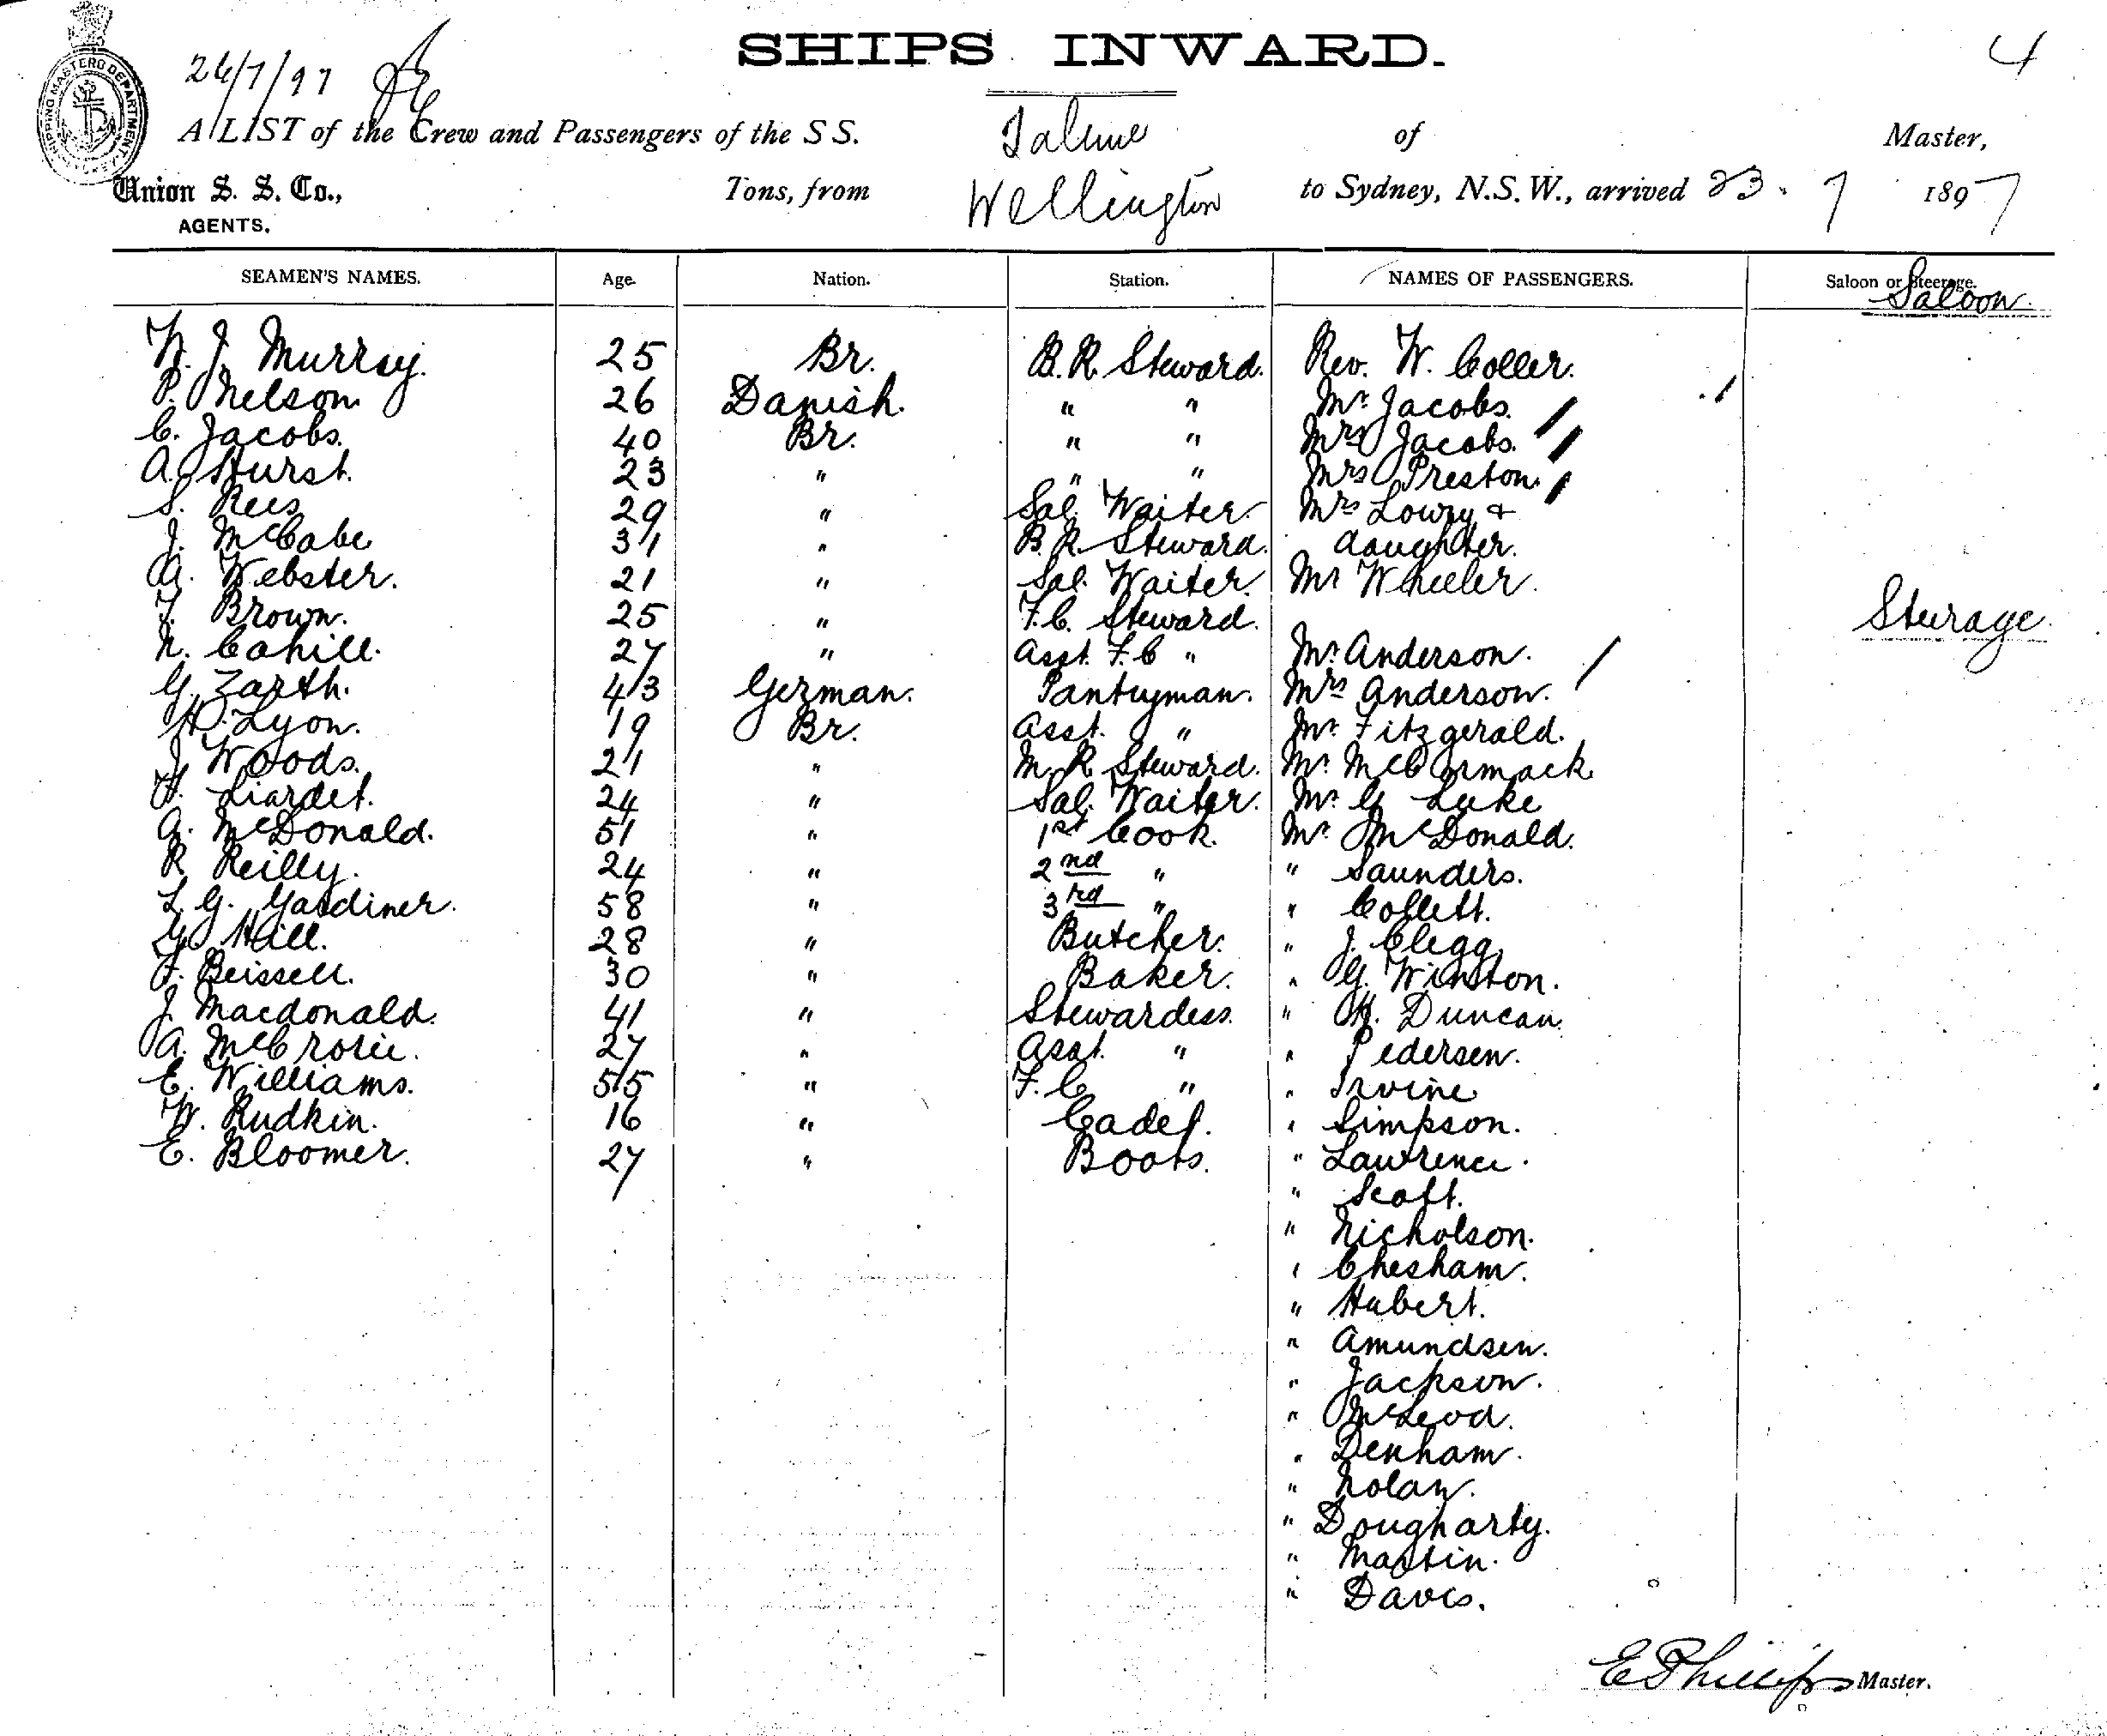 SHIPS INWARD.
4
26/7/97
A LIST of the Crew and Passengers of the SS. Talune of Master,
Union S. S. Co., Tons, from Wellington to Sydney, N.S.W., arrived 23. 7 1897
AGENTS.
SEAMEN'S NAMES. Age. Nation. Station. NAMES OF PASSENGERS. Saloon or Steerage.
Saloon
W. J. Murray. 25 Br. B.R. Steward. Rev. W. Coller.
P. Nelson. 26 Danish. " " Mr. Jacobs.
C. Jacobs. 40 Br. " " Mrs Jacobs.
A. Hurst. 23 " " " Mrs Preston.
S. Rees 29 " Sal. Waiter. Mrs Lowry +
J. McCabe 31 " B.R. Steward. daughter.
A. Webster. 21 " Sal. Waiter. Mr Wheeler.
F. Brown. 25 " F.C. Steward. Sturage
N. Cahill. 27 " Asst. F.C " Mr. Anderson.
G. Zarth. 43 German. Pantryman. Mrs Anderson.
H. Lyon. 19 Br. Asst. " Mr. Fitzgerald.
J. Woods. 21 " M.R. Steward. Mr. McCormack
H. Liardet. 24 " Sal. Waiter. Mr. G Luke
A. McDonald. 51 " 1st Cook. Mr. McDonald.
R Reilly. 24 " 2nd " " Saunders.
L. G. Gardiner. 58 " 3rd " " Collett.
G. Hill. 28 " Butcher. " J. Clegg.
F. Beissell. 30 " Baker. " G. Winston.
J. Macdonald. 41 " Stewardess. " H. Duncan.
A. McCrorie. 27 " Asst. " " Pedersen.
E. Williams. 55 " F.C " " Irvine
W. Rudkin. 16 " Cadet. " Simpson.
E. Bloomer. 27 " Boots. " Lawrence.
" Scott.
" Nicholson.
" Chesham.
" Hubert.
" Amundsen.
" Jackson.
" McLeod.
" Denham.
" Nolan.
" Dougharty.
" Martin.
" Davis.
E Phillips Master.